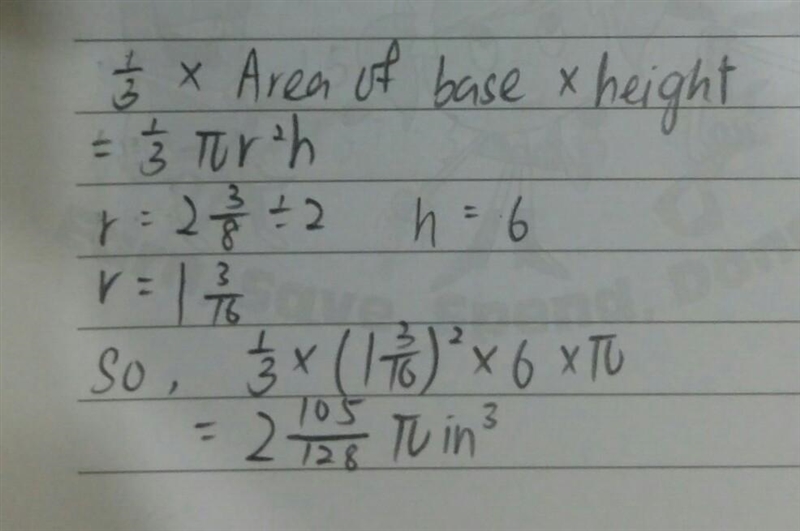 1/3 × Area of base × height
= 1/3 πr²h
r = 2 3/8 ÷ 2 h = 6
r = 1 3/16
So, 1/3 × (1 3/16)² × 6 × π
= 2 105/128 π in³